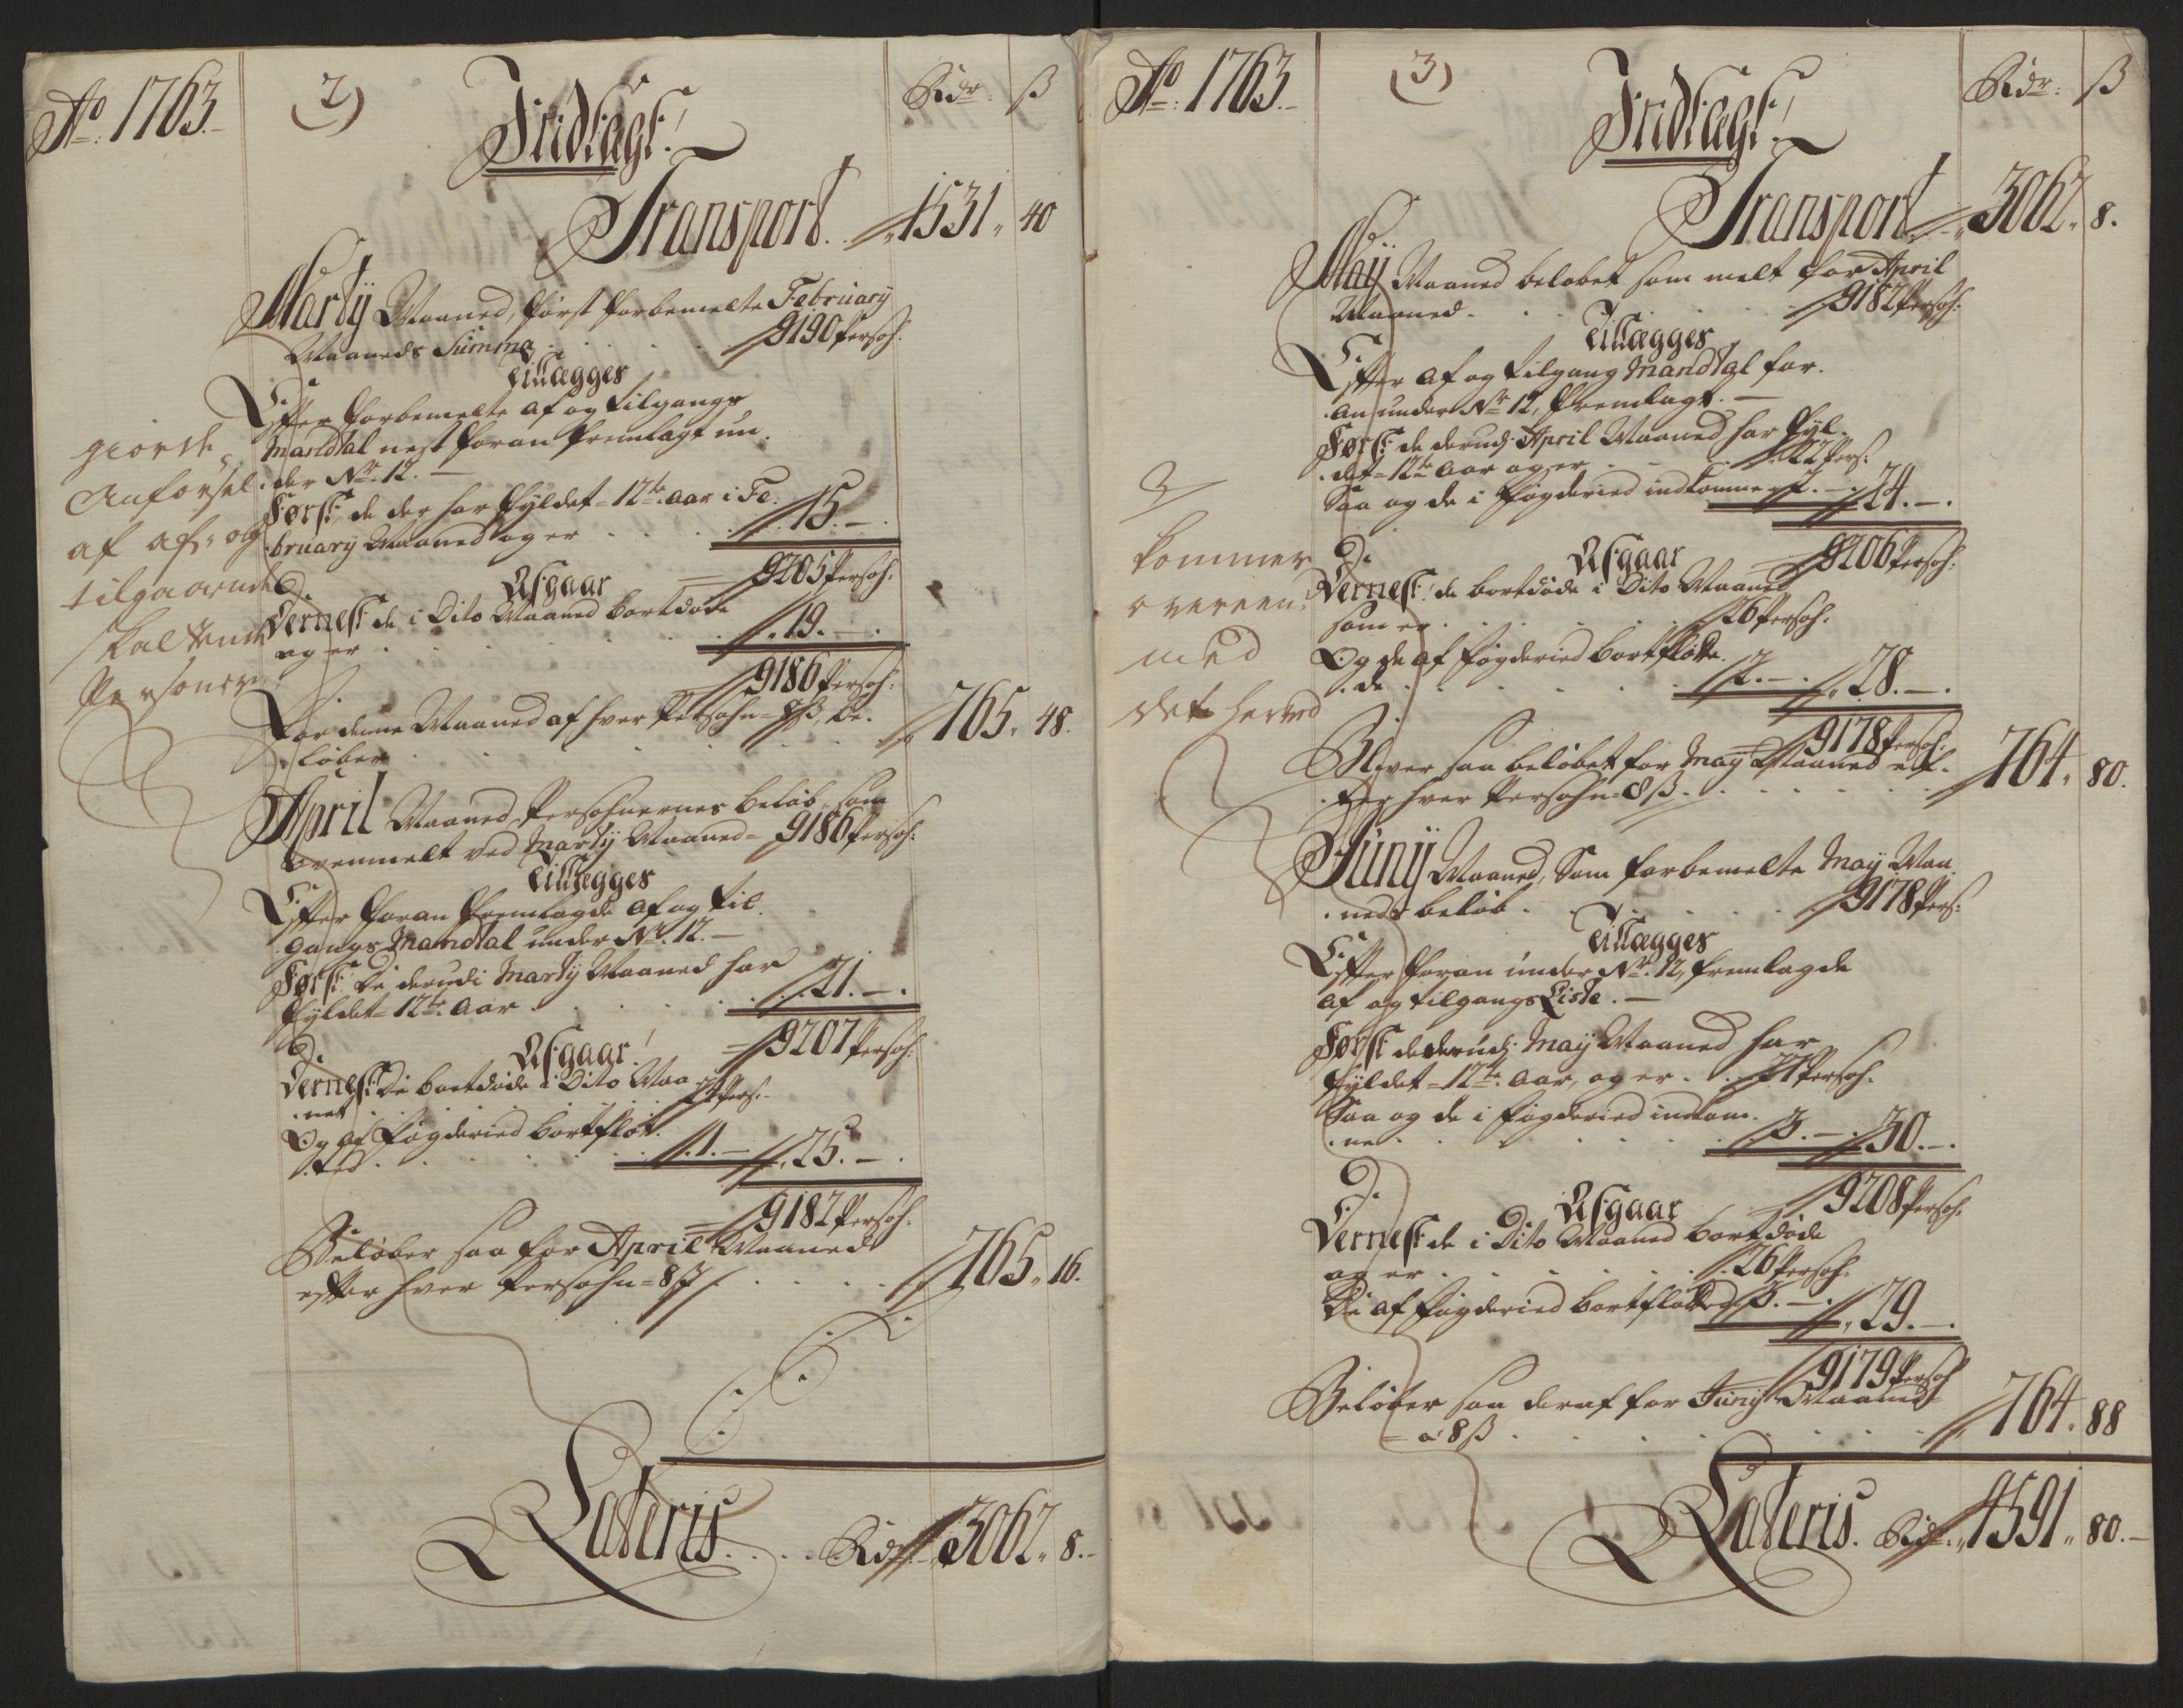 Ao 1763.
2)
Rdr. ß
Indtægt!
Transport. 1531. 40
Martÿ Maaned, først forbemelte Februarÿ
Maaneds Summa 9190 Persoh:
Tillægges
Efter forbemelte af og tilgangs
Mandtal nest foran fremlagt un-
der No 12.
Først, de der har fyldet 12te aar i Fe-
bruarÿ Maaned og er 15.
9205 Persoh:
Afgaar
Dernest de i Dito Maaned bortdøde
og er 19.
9186 Persoh:
For denne Maaned af hver Persohn 8 ß, be-
løber 765. 48.
giorde
Anførsel
af af- og
tilgaaende
skaltende
Personer
April Maaned Persohnernes beløb, som
ovenmelt ved Martÿ Maaned 9186 Persoh:
Tillægges
Efter foran fremlagde af og til-
gangs Mandtal under No 12.
Først De derudi Martÿ Maaned har
fyldet 12te Aar 21.
9207 Persoh:
Afgaar!
Dernest De bortdøde i Dito Maa-
net 24 Pers:
Og af Fogderied bortfløt-
ted 1. 25.
9182 Persoh:
Beløber saa for April Maaned
efter hver Persohn 8 ß 765. 16.
Lateris. Rdr 3062. 8.
Ao: 1763.
(3)
Rdr: ß
Indtægt!
Transport 3062. 8.
Maÿ Maaned beløbet som melt for April
Maaned 9182 Persoh:
Tillægges
Efter af og tilgang Mandtal for-
an under No 12, fremlagt.
Først de derudi April Maaned har fyl-
det 12te Aar og er 22 Pers:
Saa og de i Fogderied indkomme 2. 24.
9206 Persoh:
Afgaar
Dernest! de bortdøde i Dito Maaned
som er 26 Persoh.
Og de af Fogderied bortflötte-
de 2. 28.
9178 Persoh.
Bliver saa beløbet for Maÿ Maaned ef-
ter hver Persohn 8 ß. 764. 80.
kommer
overeen
med
det herved
Junÿ Maaned, Som forbemelte Maÿ Maa-
neds beløb 9178 Pers:
Tillægges
Efter foran under No. 12, fremlagde
af og tilgangs Liste.
Først de derudj Maÿ Maaned har
fyldet 12te Aar, og er 27 Persoh.
Saa og de i Fogderied indkom-
ne 3. 30.
9208 Persoh.
Afgaar
Dernest de i Dito Maaned bortdøde
og er 26 Persoh.
De af Fogderied bortflötted 3. 29.
9179 Persoh
Beløber saa deraf for Junÿ Maaned
a 8 ß 764. 88
Lateris. Rdr. 4591. 80.